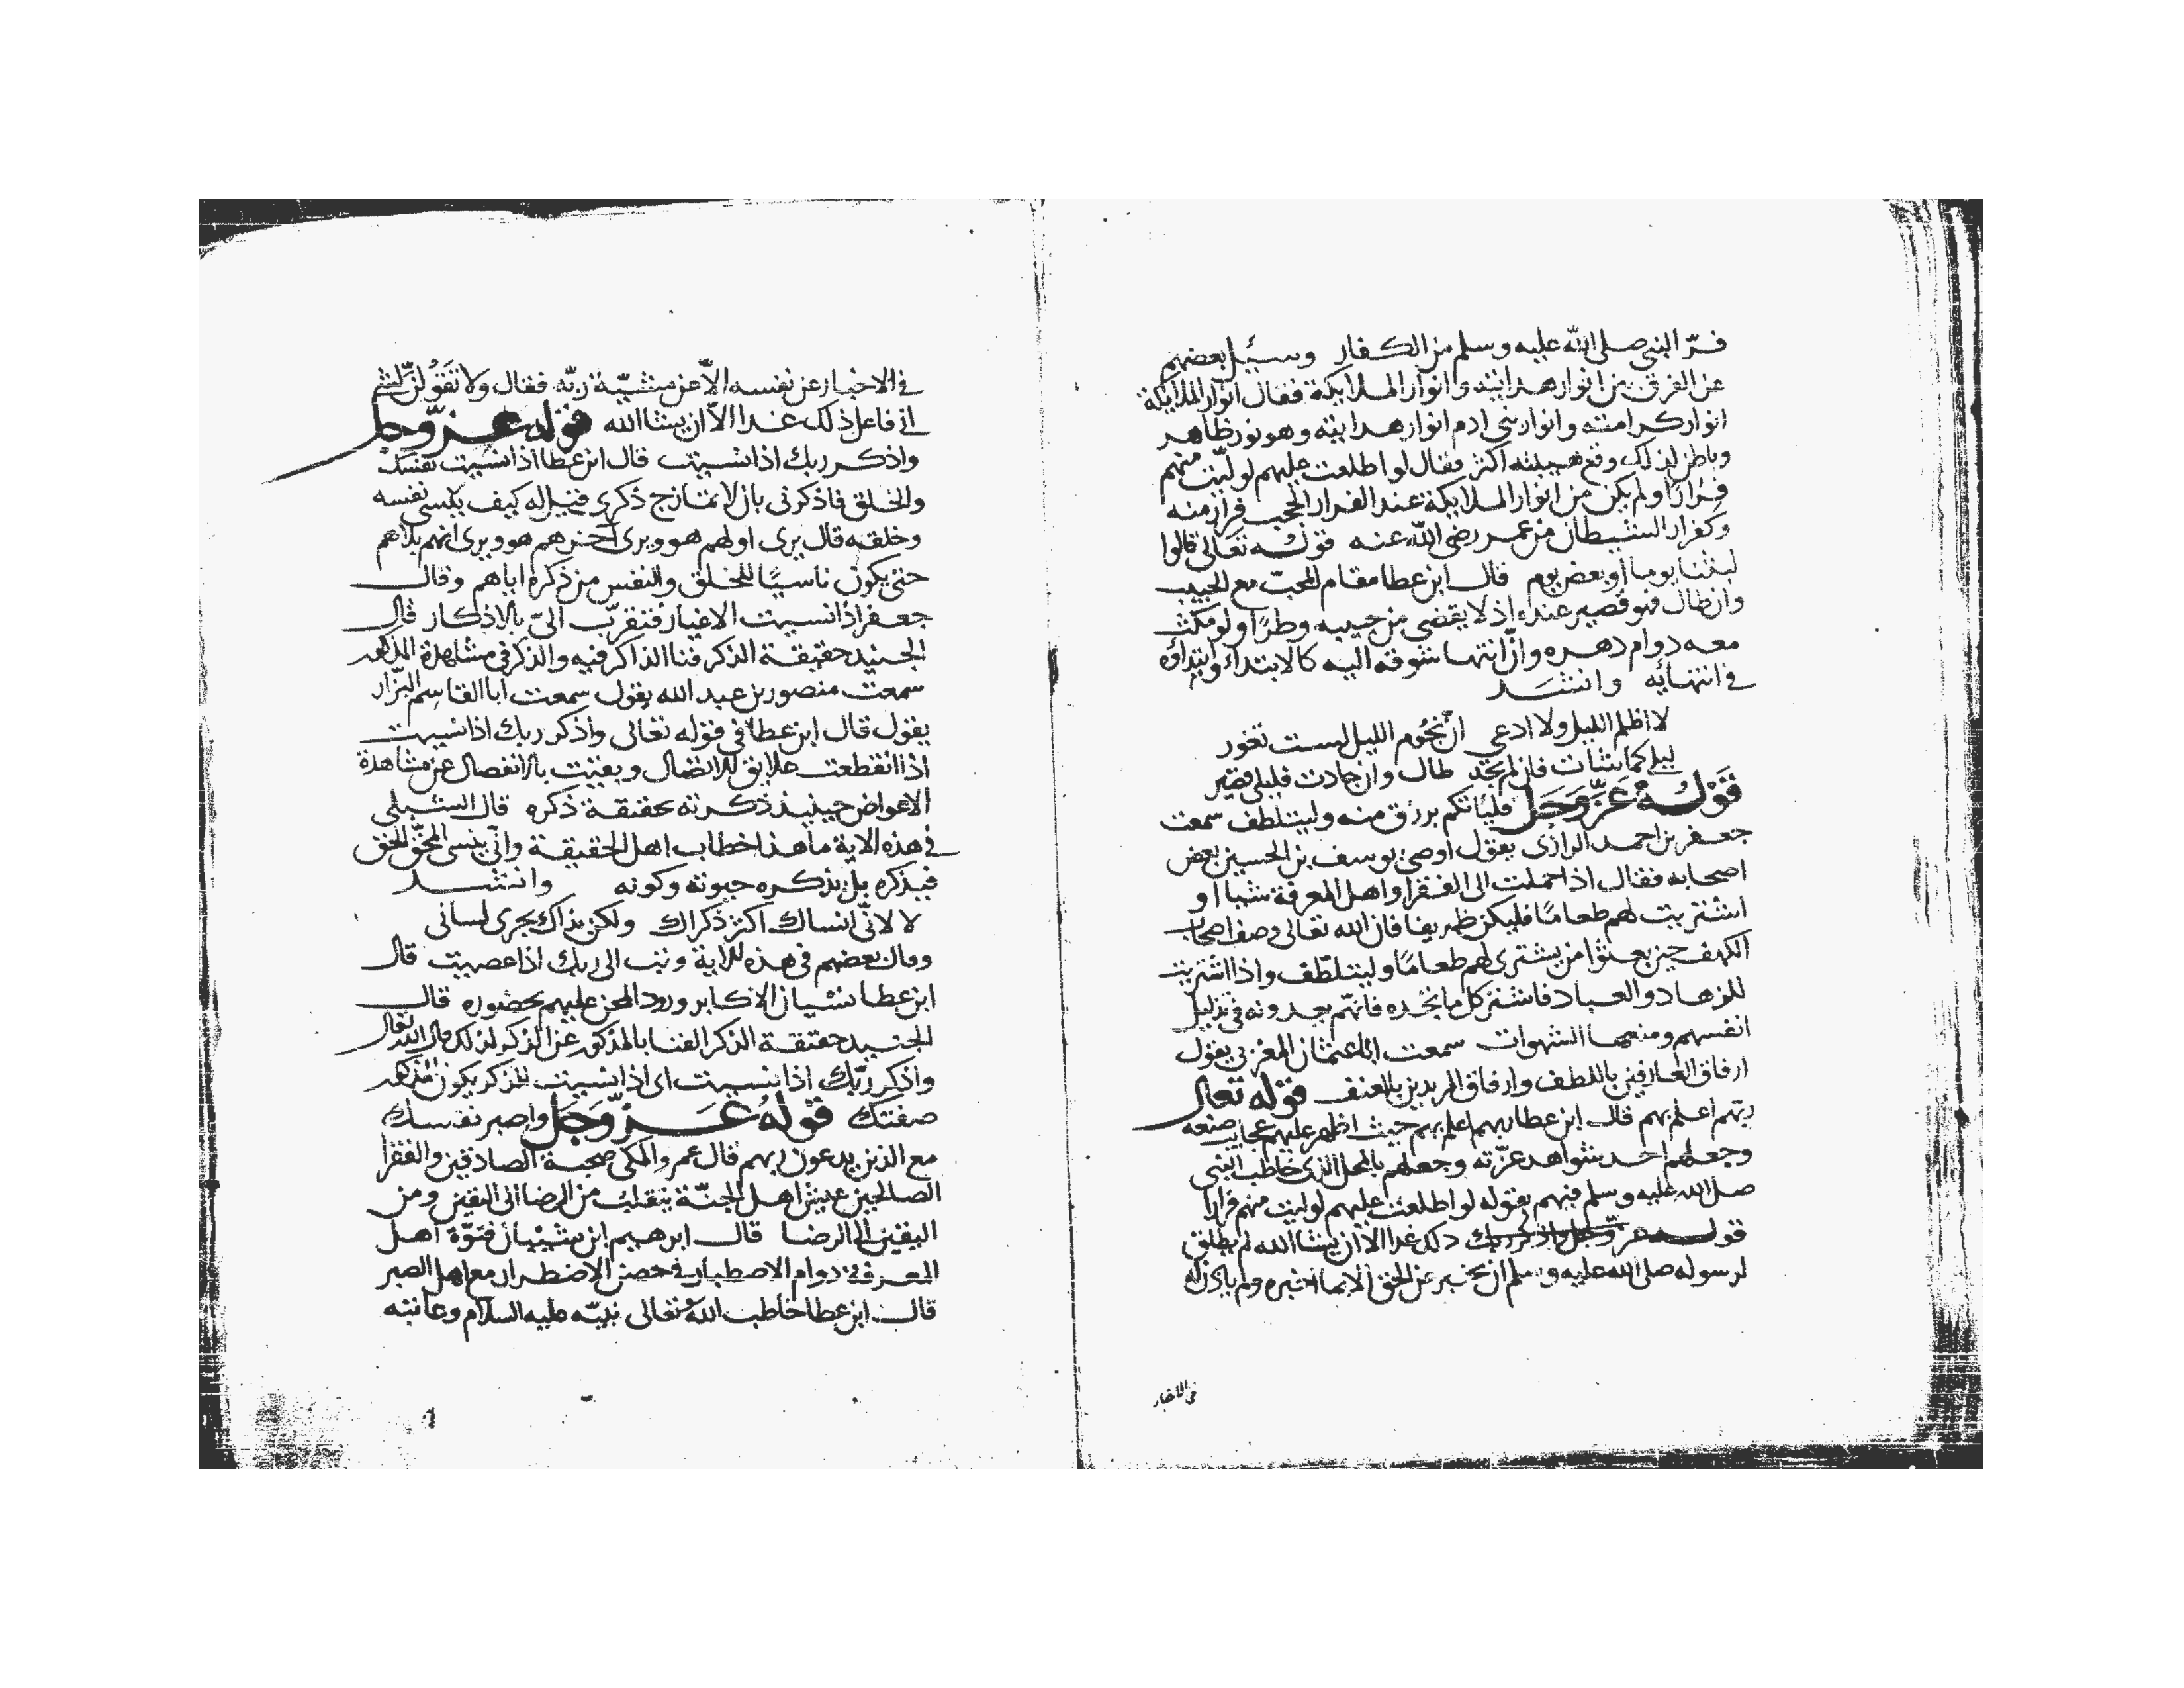 فرّ النبي صلى الله عليه وسلم من الكفار وسئل بعضهم
عن الفرق بين انوار هدايته وانوار الملايكة فقال انوار الملايكة
انوار كرامته وانوار بني ادم انوار هدايته وهو نور ظاهر
وباطن لذلك وقع اكثر فقال لو اطلعت عليهم لوليت منهم
فرارًا ولم يكن من انوار الملايكة عند الفرار الحجب فرار منه
وكفرار الشيطان من عمر رضى الله عنه قوله تعالى قالوا
لبثنا يوما او بعض يوم قال ابن عطا مقام المحبّ مع الحبيب
وان طال فهو قصير عنده اذ لا يقضى من حبيبه وطرًا ولو مكث
معه دوام دهره وانّ انتها شوقه اليه كالابتداء وابتداؤه
في انتهايه وانشد
لا اظلم الليل ولا ادعي ان نجُوم الليل ليست تغور
ليلي كما شات فان لم تجد طال وان جادت فليلي قصير
قوله عزّ وجل فلياتكم برزق منه وليتلطف سمعت
جعفر بن احمد الرازى يقول اوصى يوسف بن الحسين بعض
اصحابه فقال اذا حملت الى الفقرا واهل المعرفة شيا او
اشتريت لهم طعامًا فليكن ظريفا فان الله تعالى وصف اصحاب
الكهف حين بعثوا من يشترى لهم طعامًا وليتلطّف واذا اشتريت
للزهاد والعباد فاشتر كل ما تجده فانهم بعد ونه في تذليل
انفسهم ومنعها الشهوات سمعت ابا عثمان المغربي يقول
ارفاق العارفين باللطف وارفاق المريدين بالعنف قوله تعالى
ربّهم اعلم بهم قال ابن عطا ربهم اعلم بهم حيث اظهر عليهم عجايب صنعه
وجعلهم احد شواهد عزّته وجعلهم بالمحل الذى خاطب النبى
صلى الله عليه وسلم فيهم بقوله لو اطلعت عليهم لوليت منهم فرارا
قوله عز وجل واذكر ربك ذلك غدا الا ان يشا الله لم يطلق
لرسوله صلى الله عليه وسلم ان يخبر عن الحق الا بما اخبره ولم ياذن له
في الاخبار
في الاخبار عن نفسه الّا عن مشيّة ربّه فقال ولا تقولنّ لشى
اني فاعل ذلك غدا الّا ان يشا الله قوله عزّ وجل
واذكر ربك اذا نسيت قال ابن عطا اذا نسيت نفسك
والخلق فاذكرنى بان لا تمازج ذكري فقيل له كيف ينسى نفسه
وخلقه قال يرى اولهم هو ويرى اخرهم هو ويرى انهم بلاهم
حتى يكون ناسيًا للخلق والنفس من ذكره اياهم وقال
جعفر اذا نسيت الاغيار فتقرّب الىّ بالاذكار قال
الجنيد حقيقة الذكر فنا الذاكر فيه والذكر في مشاهدة المذكور
سمعت منصور بن عبد الله يقول سمعت ابا القاسم البزّار
يقول قال ابن عطا في قوله تعالى واذكر ربك اذا نسيت
اذا انقطعت علايق الاتصال وبقيت بالانفصال عن مشاهدة
الاعواض حينيذ ذكرته بحقيقة ذكره قال الشبلي
في هذه الاية ما هذا خطاب اهل الحقيقة وانّي ينسى المحقّ الحق
فيذكره بل يذكره حيوته وكونه وانشد
لا لانّي انساك اكثر ذكراك ولكن بذاك يجرى لسانى
وقال بعضهم في هذه الاية وتب الى ربك اذا عصيت قال
ابن عطا نسيان الاكابر ورود المحن عليهم بحضوره قال
الجنيد حقيقة الذكر الفنا بالمذكور عن الذكر لذلك قال الله تعالى
واذكر ربّك اذا نسيت اى اذا نسيت الذكر يكون المذكور
صفتك قوله عزّ وجل واصبر نفسك
مع الذين يدعون ربهم قال عمرو المكى صحبة الصادقين والفقرا
الصالحين عيش اهل الجنّة يتقلب من الرضا الى اليقين ومن
اليقين الى الرضا قال ابرهيم ابن شيبان فتوّة اهل
المعرفة دوام الاصطبار في حصن الاضطرار مع اهل الصبر
قال ابن عطا خاطب الله تعالى نبيّه عليه السلام وعاتبه